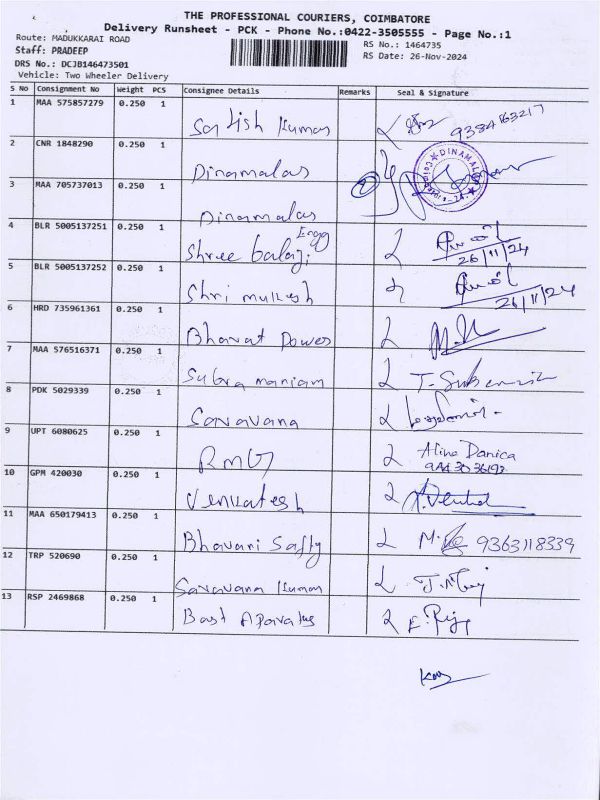 THE PROFESSIONAL COURIERS, COIMBATORE
Delivery Runsheet - PCK - Phone No.:0422-3505555 - Page No.:1
Route: MADUKKARAI ROAD
RS No.: 1464735
Staff: PRADEEP
RS Date: 26-Nov-2024
DRS No.: DCJB146473501
Vehicle: Two Wheeler Delivery
S No Consignment No Weight PCS Consignee Details Remarks Seal & Signature
1 MAA 575857279 0.250 1 Satish Kumar 9384163217
2 CNR 1848290 0.250 1 Dinamalar DINAMALAR
3 MAA 705737013 0.250 1 Dinamalar
4 BLR 5005137251 0.250 1 Shree balaji Engg 26/11/24
5 BLR 5005137252 0.250 1 Shri mukesh 26/11/24
6 HRD 735961361 0.250 1 Bharat Power
7 MAA 576516371 0.250 1 Subramaniam
8 PDK 5029339 0.250 1 Saravana
9 UPT 6080625 0.250 1 RMG Alina Danica
10 GPM 420030 0.250 1 Venkatesh
11 MAA 650179413 0.250 1 Bhavani Safty 9363118339
12 TRP 520690 0.250 1 Saravana Kumar
13 RSP 2469868 0.250 1 Bast Aparatus